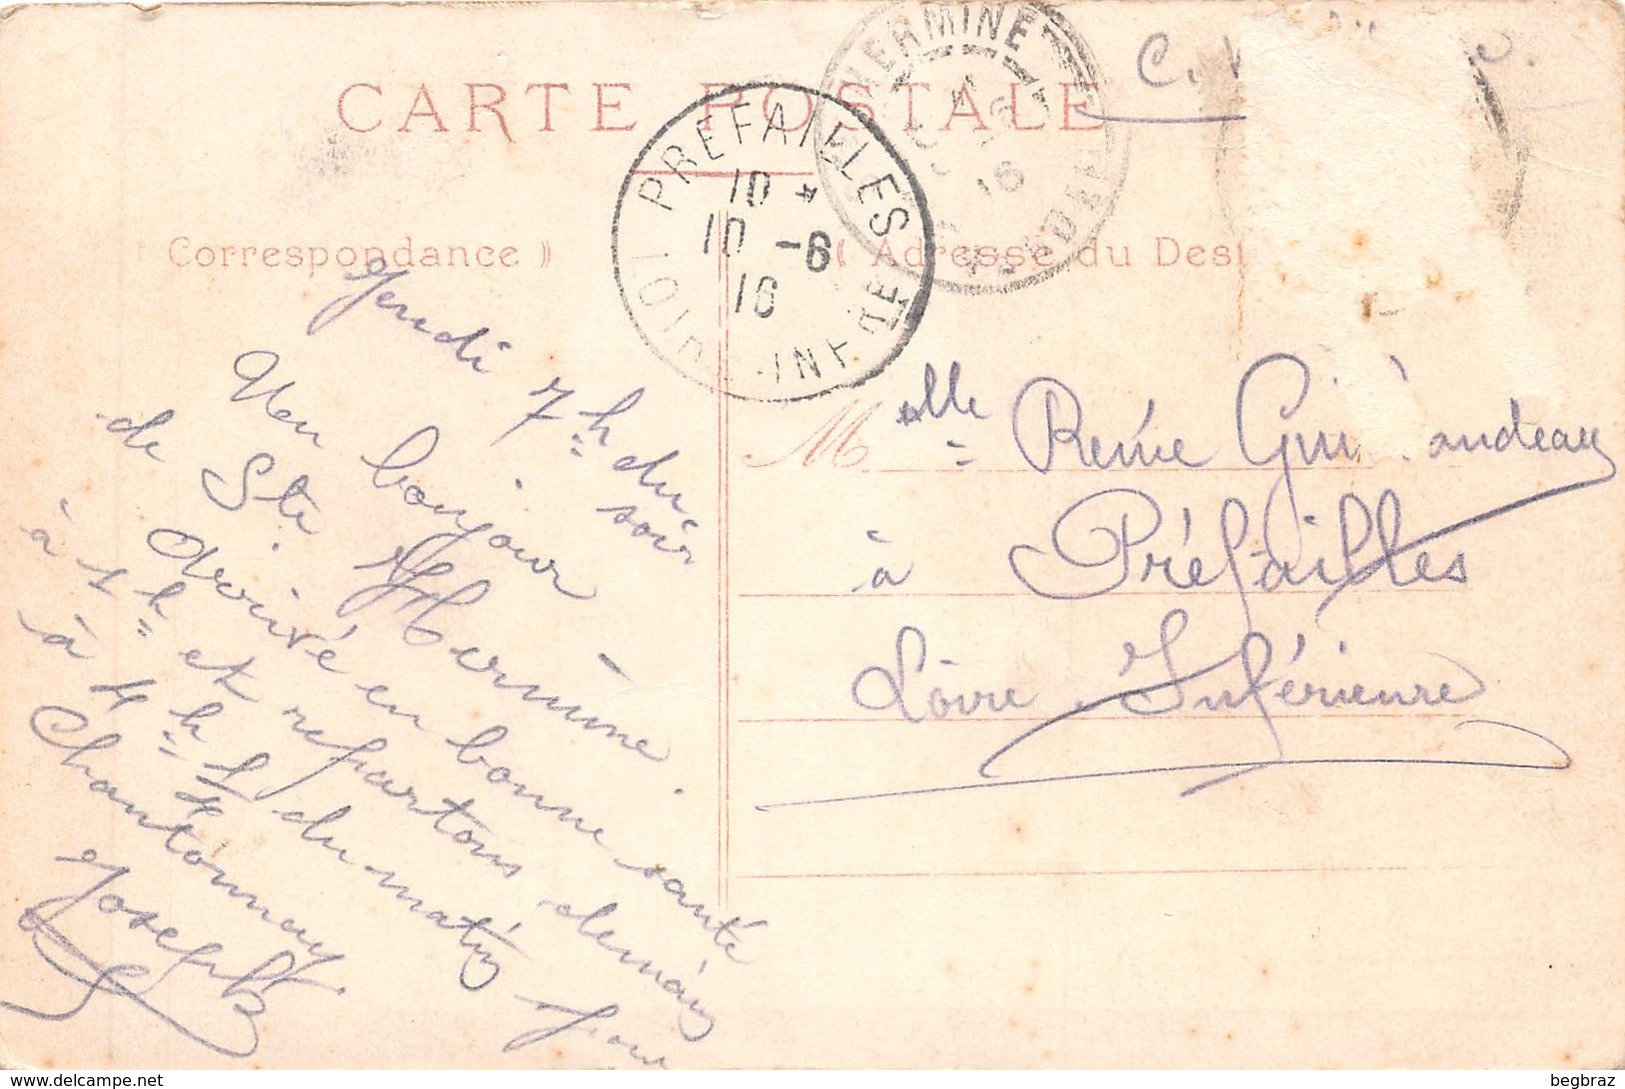 CARTE POSTALE
HERMINE
16
VENDÉE
PRÉFAILLES
10 *
10 -6
16
LOIRE-INFRE
C.
Correspondance »
« Adresse du Dest
Jeudi 7h du
soir
Un bonjour
de Ste Hermine.
Arrivé en bonne santé
à 1h et repartons demain
à 4h 1/4 du matin pour
Chantonnay.
Joseph
Mlle Renée Gui andeau
à Préfailles
Loire Inférieure
begbraz